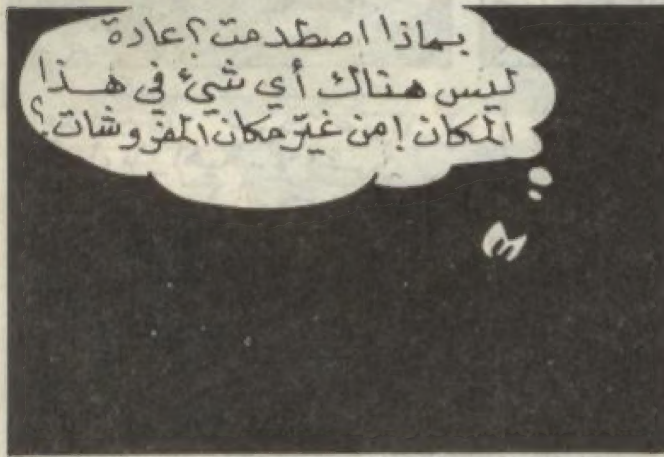 بماذا اصطدمت؟ عادة
ليس هناك أي شيئ في هذا
المكان! من غيّر مكان المفروشات؟